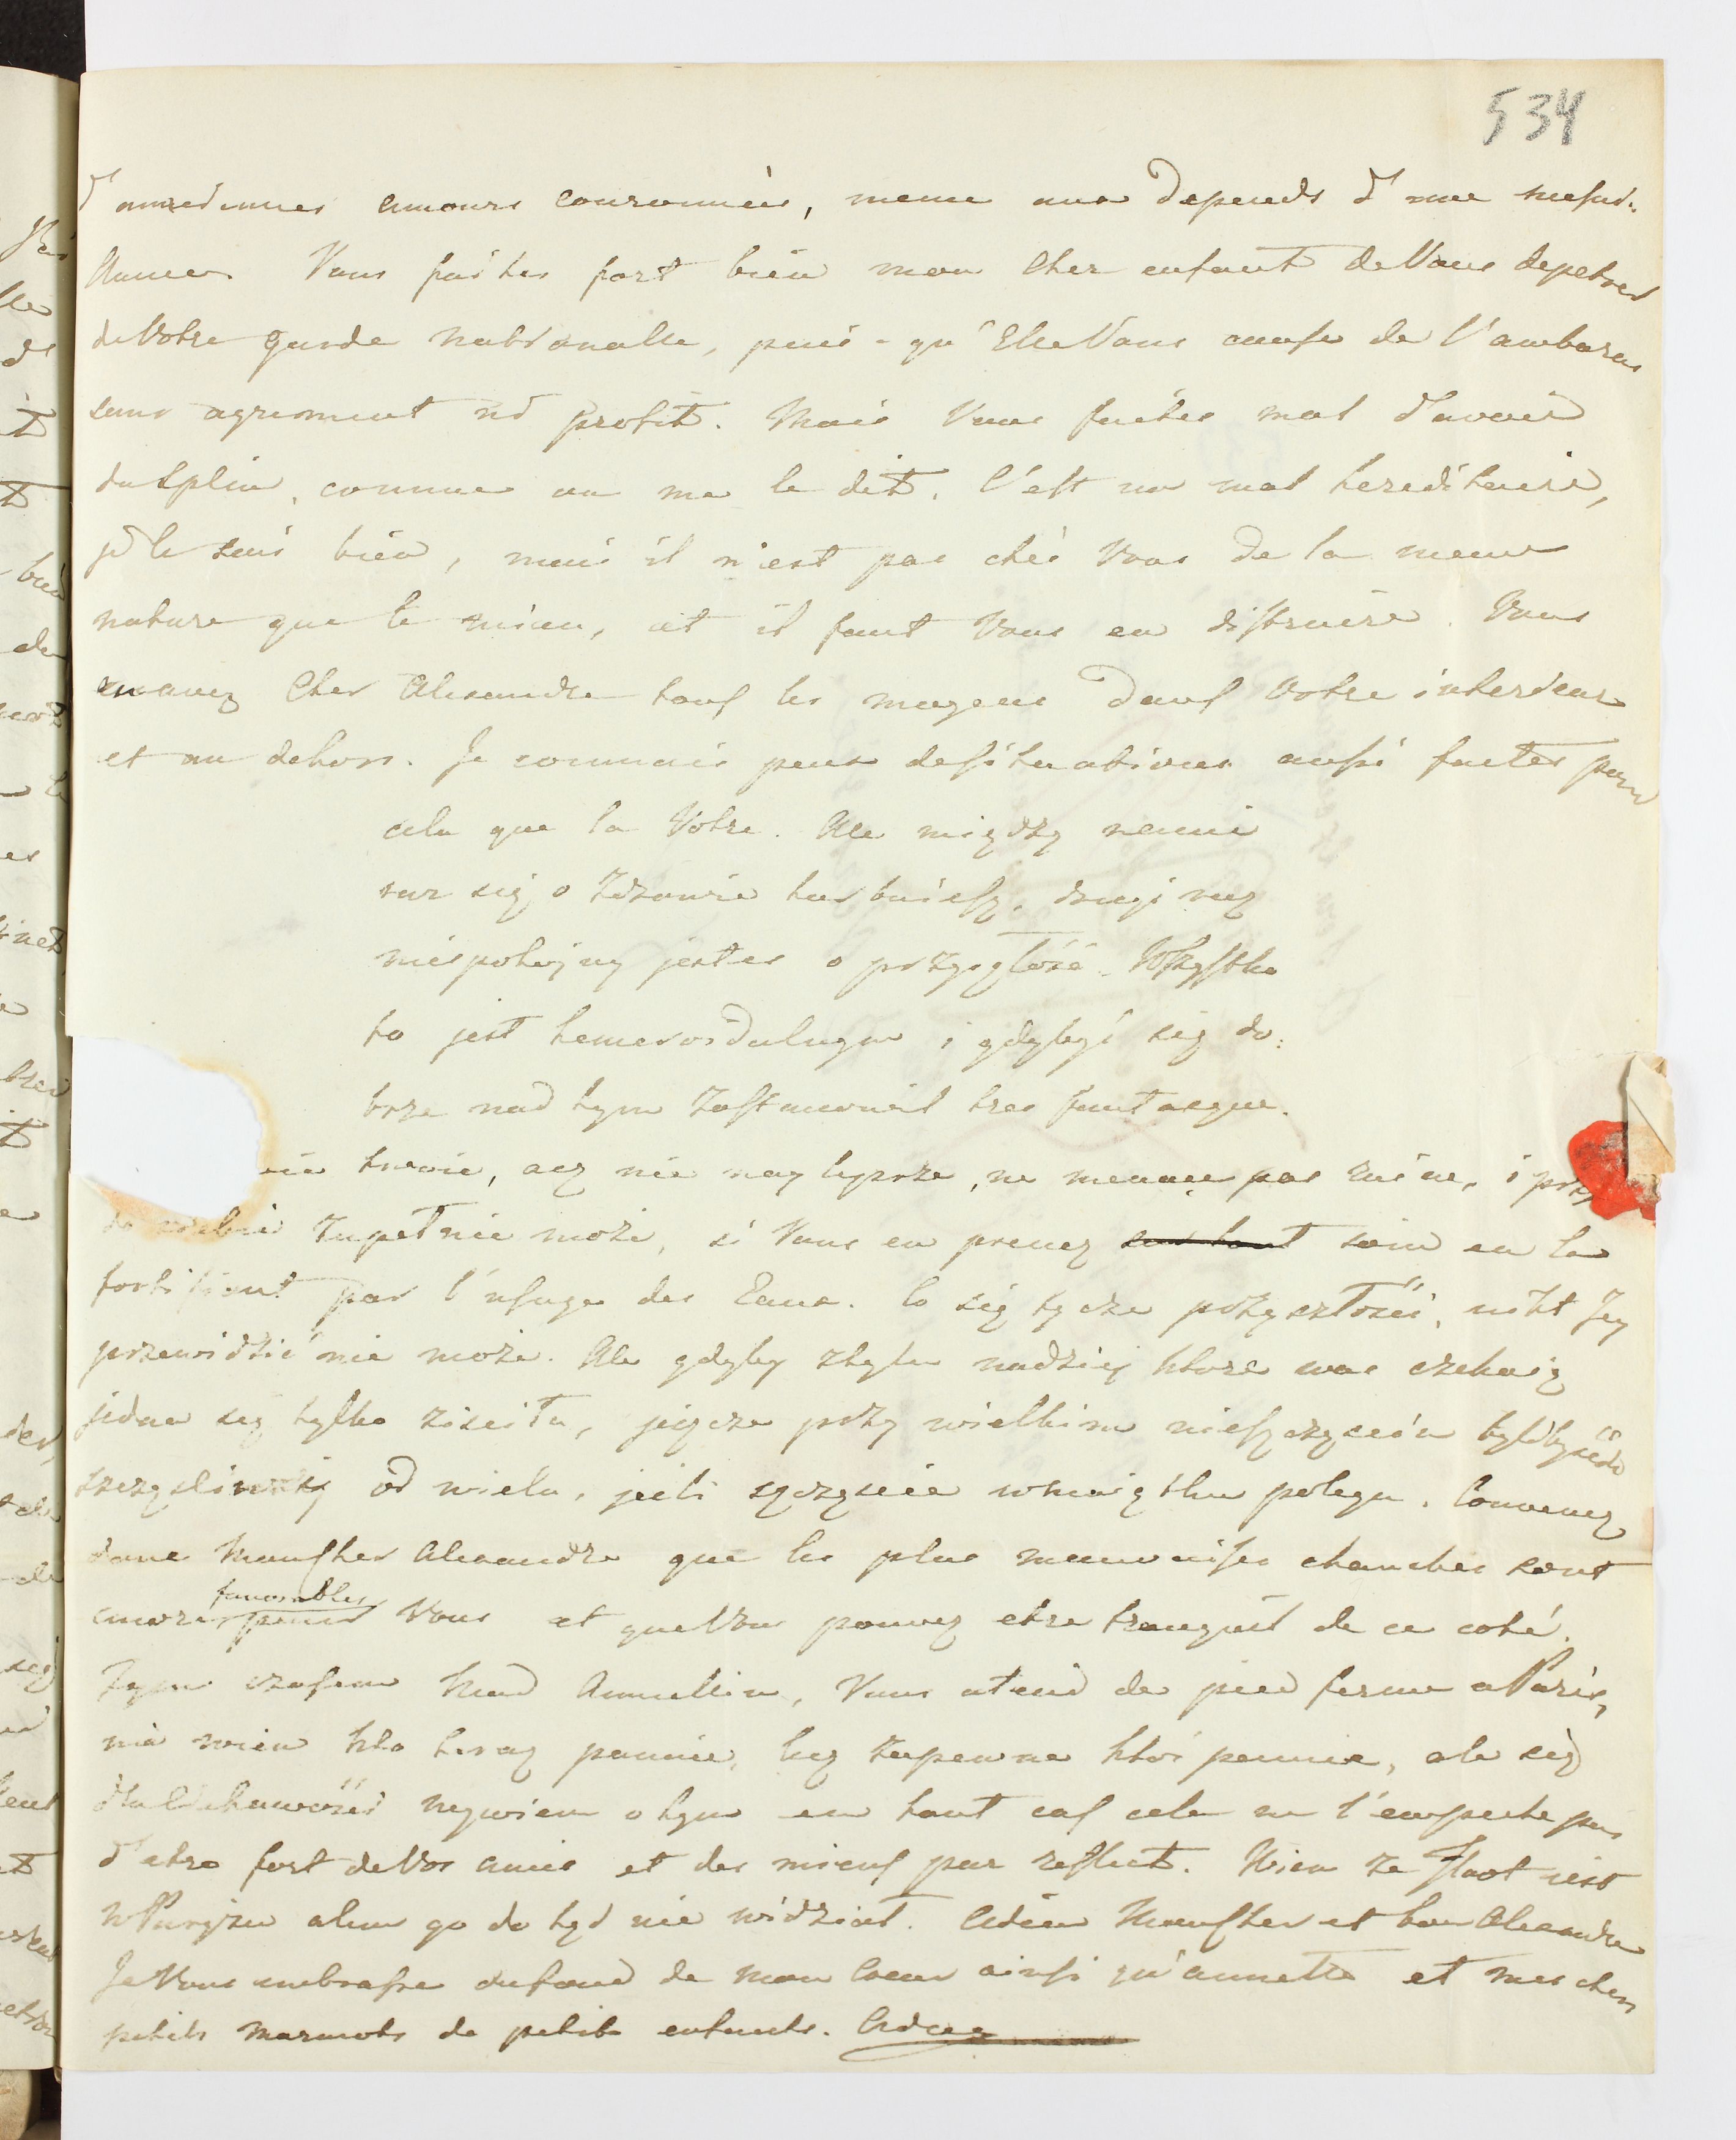 534
d'anciennes amours couronnées, meme aux depends d'une mesal:
liance. Vous faites fort bien mon Cher enfant de Vous depetrer
de Votre garde nationalle, puis-qu'Elle Vous cause de l'ambaras
sans agrement ni profit. Mais Vous faites mal d'avoir
du Spline, comme on me le dit. C'est un mal hereditaire,
je le sais bien, mais il n'est pas chés Vous de la meme
nature que le mien, et il faut Vous en distraire. Vous
en avez Cher Alexandre tous les moyens dans Votre interieur
et au dehors. Je connais peux de situations aussi faites pour
cela que la Votre. Ale między nami
raz się o Zdrowie turbuiesz, drugi raz
niespokojny jestes o przyszłość. Wszystko
to jest hemeroidalnym i gdybyś się do:
brze nad tym Zastanowił
nie trwie, acz nie naylepsze, ne menace pas ruine, i przy
Zupełnie może, si Vous en prenez soin en la
fortifiant par l'usage des Eaux. Co się tycze przyszłości, nikt Jey
przewidzić nie może. Ale gdyby z tylu nadziej które was czekaią
jedna się tylko ziściła, jeszcze przy wielkim nieszczęściu byłbyś
szczęśliwszy od wielu, jeśli szczęscie w maiątku polega. Convenez
donc Mon Cher Alexandre que les plus mauvaises chanches sont
encore favorables pour Vous et que Vous pouvez etre tranquil de ce coté.
Tym czasem Mad Vous atend de pied ferme a Paris,
nie wiem kto teraz panuie, lecz zapewne ktoś panuie, ale się
dla Ciekawości o tym en tout cas cela ne l'empeche pas
d'etre fort de Vos amis et des miens par reflect. Wiem ze Flaot jest
w Paryżu alem go do tąd nie widział. Adieu Mon Cher et bon Alexandre
Je Vous embrasse du fond de mon Coeur ainsi qu'annette et mes chers
petits marmots de petits enfants. Adieu